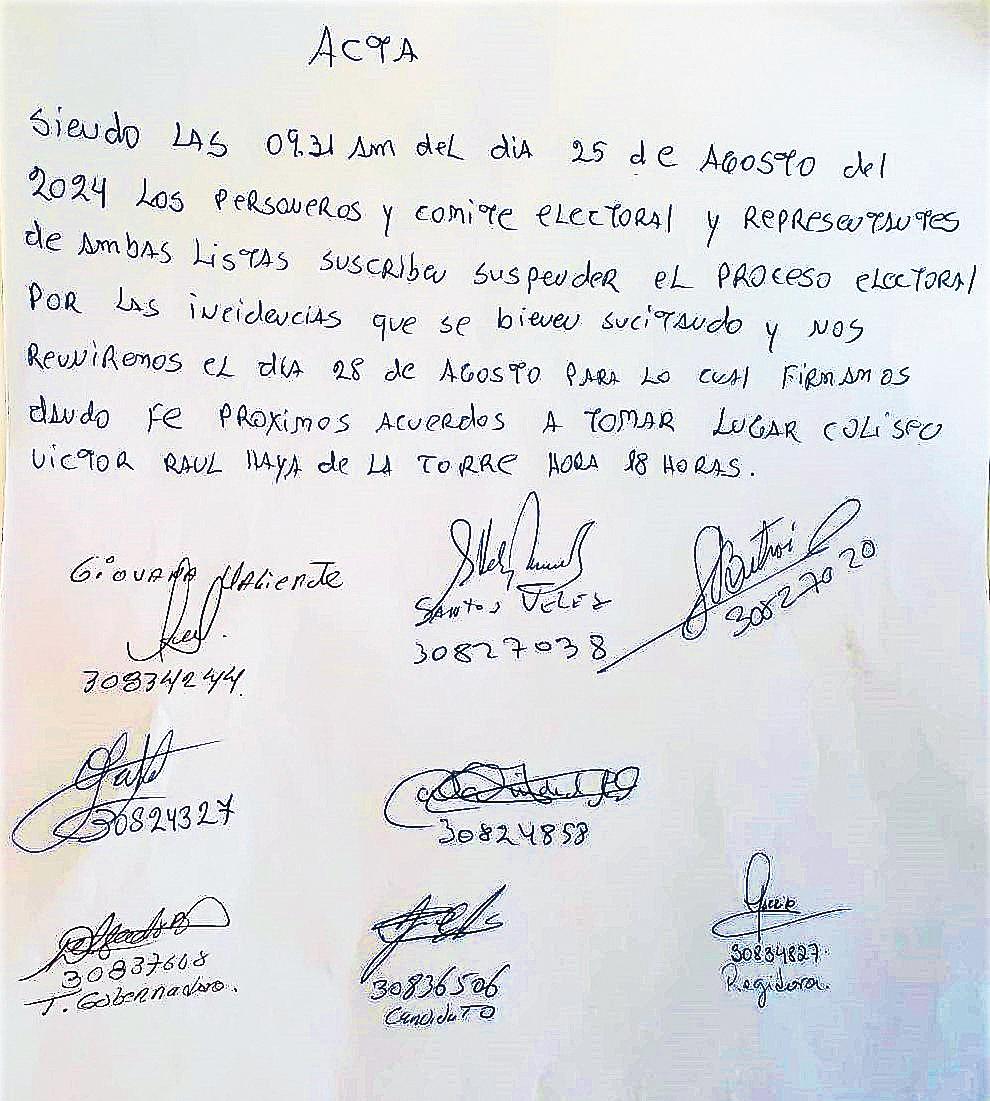 ACTA
Siendo LAS 09.31 Am del dia 25 de AGOSTO del
2024 Los PERSONEROS y COMITE ELECTORAL y REPRESENTANTES
de AMBAS LISTAS SUSCRIBEN SUSPENDER EL PROCESO ELECTORAL
POR LAS incidencias que se bienen sucitando y NOS
REUNIREMOS EL dia 28 de AGOSTO PARA LO cual FIRMAMOS
dando FE PROXIMOS ACUERDOS A TOMAR LUGAR COLISEO
VICTOR RAUL HAYA de LA TORRE HORA 18 HORAS.
Giovana Valiente
30834244
Santos Velez
30827038
30827020
30824327
30824858
30837608
T. Gobernadora.
30836506
Candidato
30834827
Regidora.